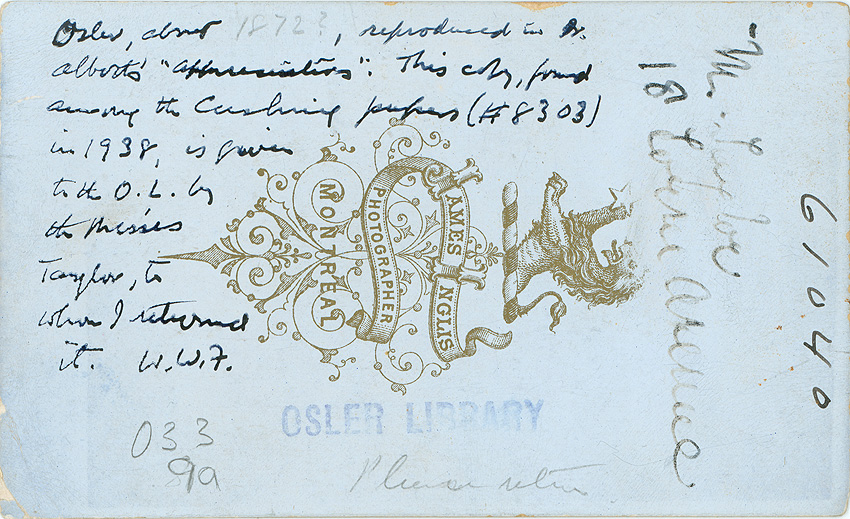 Osler, about 1872?, reproduced in Dr.
Abbott's "Appreciations". This copy, found
among the Cushing papers (#8303)
in 1938, is given
to the O.L. by
the Misses
Taylor, to
whom I returned
it. W.W.F.
JAMES INGLIS
PHOTOGRAPHER
MONTREAL
OSLER LIBRARY
033
99a
Please return
18 Lorne Avenue
61040